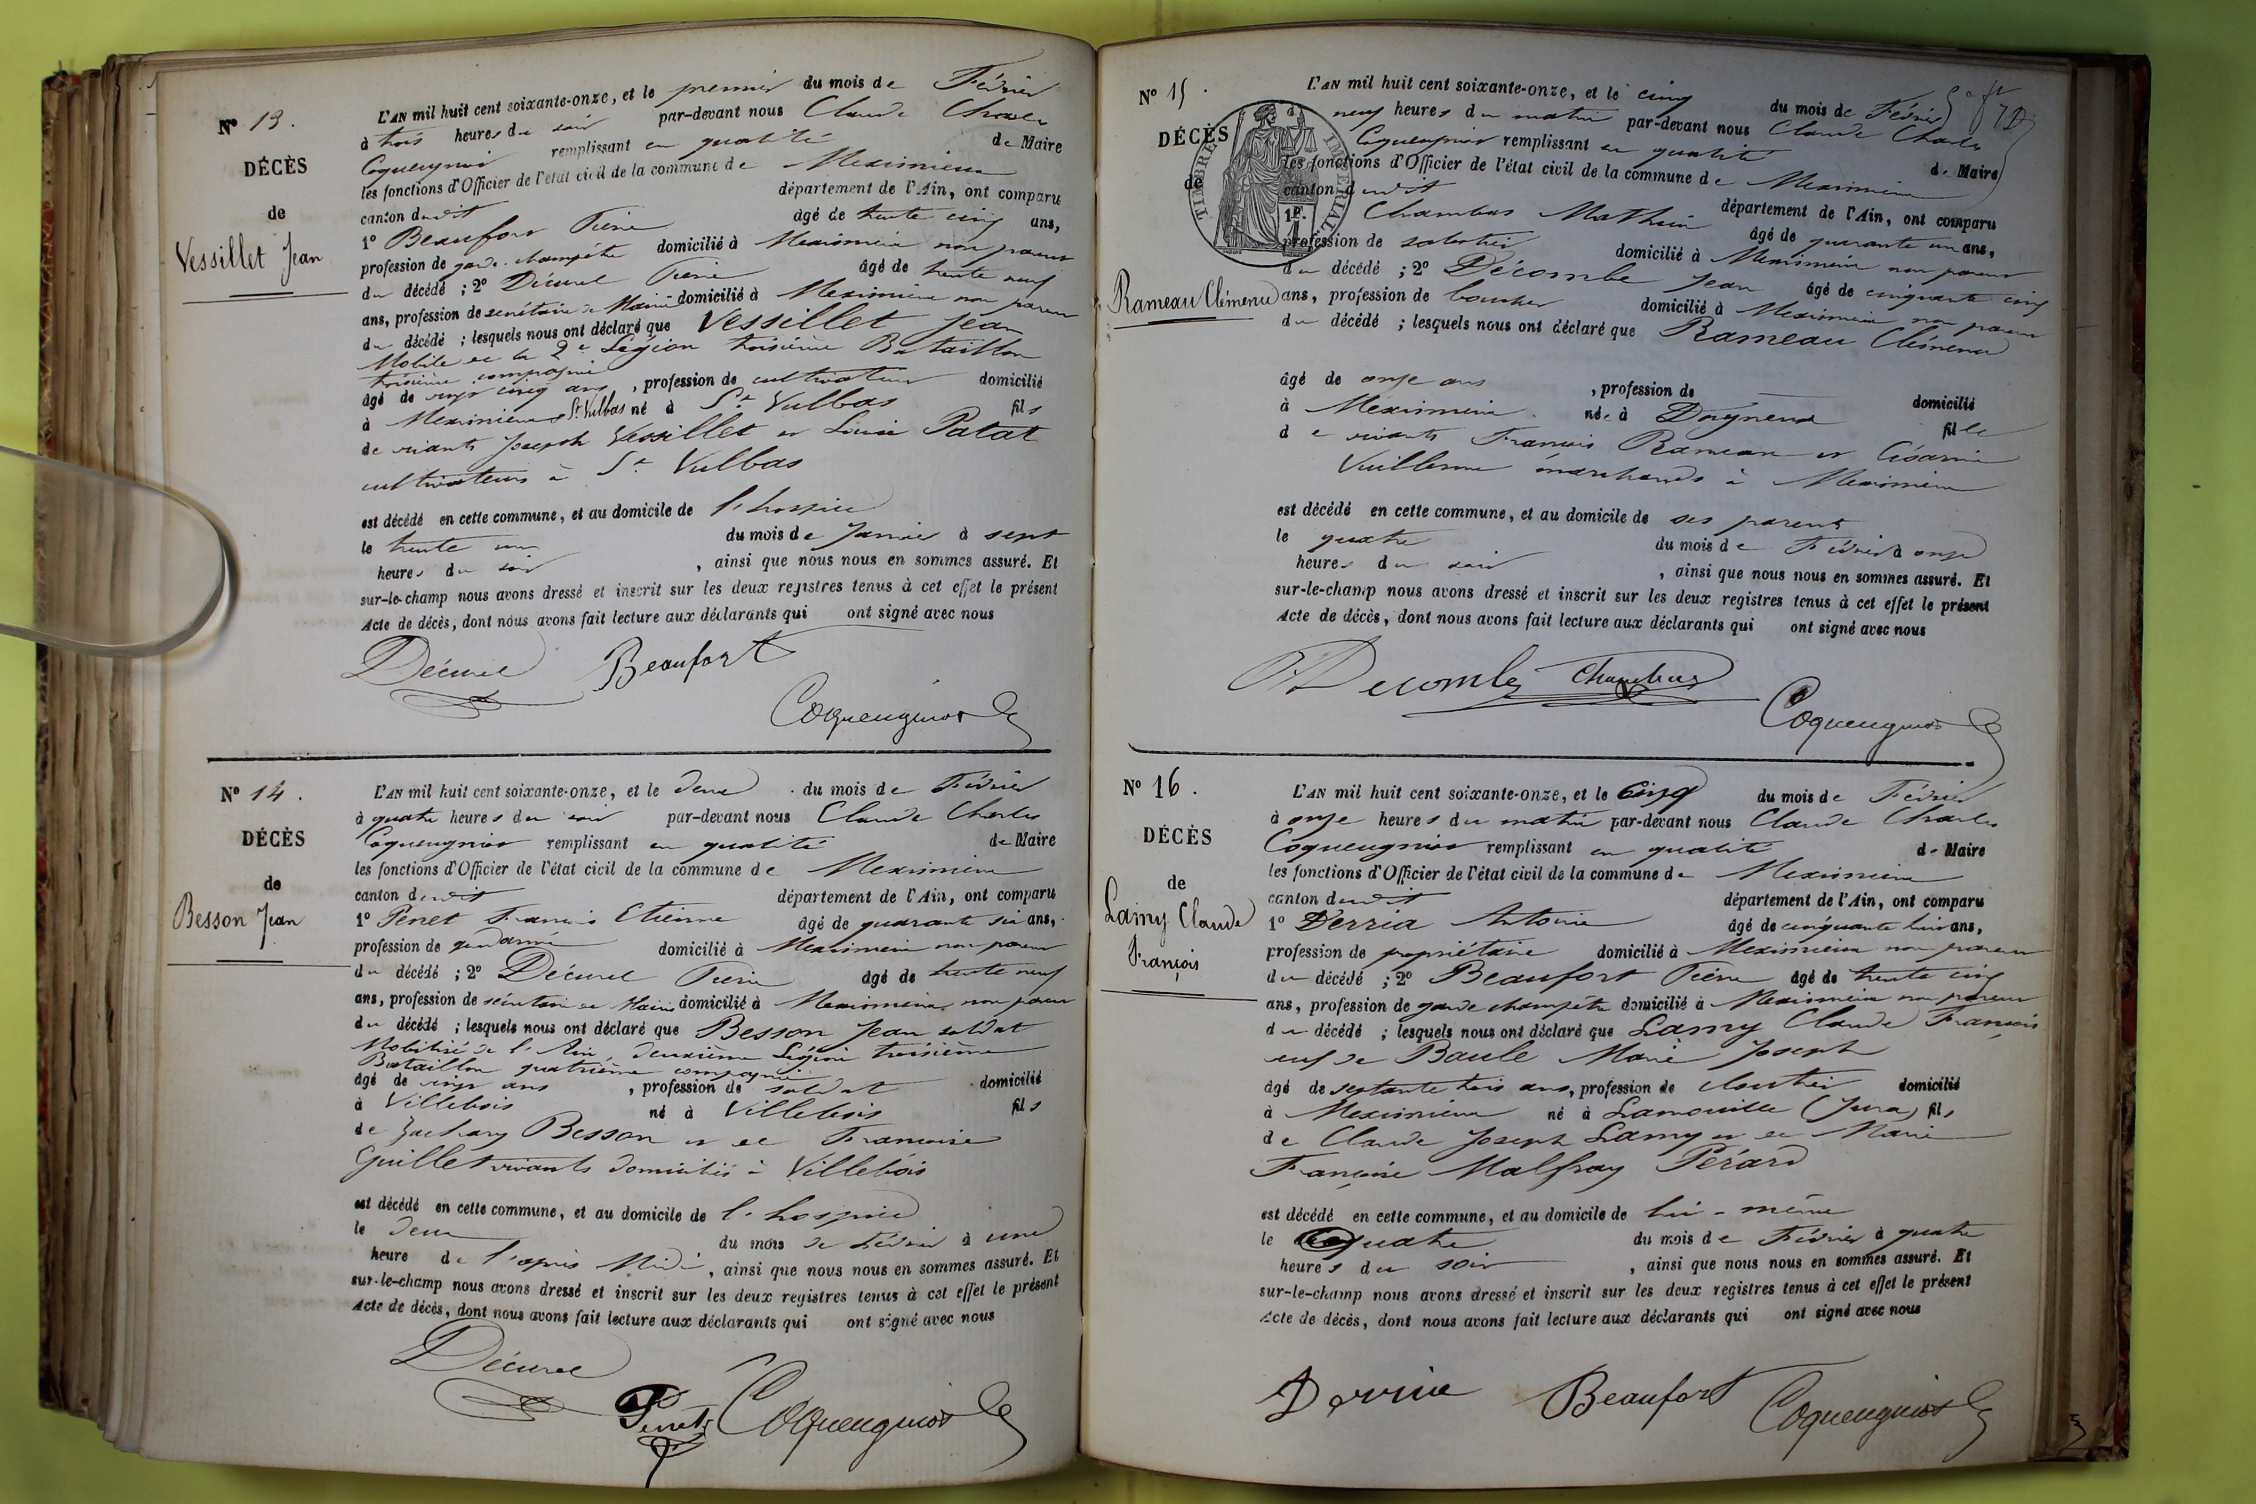 N° 13.
DÉCÈS
de
Vessillet Jean
L'AN mil huit cent soixante-onze, et le premier du mois de Février
à trois heures du soir par-devant nous Claude Charles
Coqueugniot remplissant en qualité de Maire
les fonctions d'Officier de l'état civil de la commune de Meximieux
canton dudit département de l'Ain, ont comparu
1° Beaufort Pierre âgé de trente cinq ans,
profession de garde champêtre domicilié à Meximieux non parent
du décédé ; 2° Décurel Pierre âgé de trente neuf
ans, profession de secrétaire de Mairie domicilié à Meximieux non parent
du décédé ; lesquels nous ont déclaré que Vessillet Jean
Mobile de la 2e Légion troisième Bataillon
troisième compagnie
âgé de vingt cinq ans, profession de cultivateur domicilié
à Meximieux St Vulbas né à St Vulbas fils
de vivants Joseph Vessillet et Louise Patat
cultivateurs à St Vulbas
est décédé en cette commune, et au domicile de l'hospice
le trente un du mois de Janvier à sept
heures du soir, ainsi que nous nous en sommes assuré. Et
sur-le-champ nous avons dressé et inscrit sur les deux registres tenus à cet effet le présent
Acte de décès, dont nous avons fait lecture aux déclarants qui ont signé avec nous
Décurel Beaufort
Coqueugniot
N° 14.
DÉCÈS
de
Besson Jean
L'AN mil huit cent soixante-onze, et le deux du mois de Février
à quatre heures du soir par-devant nous Claude Charles
Coqueugniot remplissant en qualité de Maire
les fonctions d'Officier de l'état civil de la commune de Meximieux
canton dudit département de l'Ain, ont comparu
1° Penet Francois Etienne âgé de quarante six ans,
profession de gendarme domicilié à Meximieux non parent
du décédé ; 2° Décurel Pierre âgé de trente neuf
ans, profession de secrétaire de Mairie domicilié à Meximieux non parent
du décédé ; lesquels nous ont déclaré que Besson Jean soldat
Mobilisé de l'Ain, deuxième Légion troisième
Bataillon quatrième compagnie
âgé de vingt ans, profession de soldat domicilié
à Villebois né à Villebois fils
de Zachary Besson et de Francoise
Guillet vivants domiciliés à Villebois
est décédé en cette commune, et au domicile de l'hospice
le deux du mois de Février à une
heure de l'après Midi, ainsi que nous nous en sommes assuré. Et
sur-le-champ nous avons dressé et inscrit sur les deux registres tenus à cet effet le présent
Acte de décès, dont nous avons fait lecture aux déclarants qui ont signé avec nous
Décurel
Penet Coqueugniot
N° 15.
DÉCÈS
de
Rameau Clémence
TIMBRE IMPÉRIAL
1F.
L'AN mil huit cent soixante-onze, et le cinq du mois de Février
à neuf heures du matin par-devant nous Claude Charles
Coqueugniot remplissant en qualité de Maire
les fonctions d'Officier de l'état civil de la commune de Meximieux
canton dudit département de l'Ain, ont comparu
Chambas Mathieu âgé de quarante un ans,
profession de sabotier domicilié à Meximieux non parent
du décédé ; 2° Décombe Jean âgé de cinquante cinq
ans, profession de boucher domicilié à Meximieux non parent
du décédé ; lesquels nous ont déclaré que Rameau Clémence
âgé de onze ans, profession de domicilié
à Meximieux née à Dagneux fille
de vivants Francois Rameau et Césarine
Vuillerme marchands à Meximieux
est décédé en cette commune, et au domicile de ses parents
le quatre du mois de Février à onze
heures du soir, ainsi que nous nous en sommes assuré. Et
sur-le-champ nous avons dressé et inscrit sur les deux registres tenus à cet effet le présent
Acte de décès, dont nous avons fait lecture aux déclarants qui ont signé avec nous
Decombe Chambas
Coqueugniot
N° 16.
DÉCÈS
de
Lamy Claude
François
L'AN mil huit cent soixante-onze, et le Cinq du mois de Février
à onze heures du matin par-devant nous Claude Charles
Coqueugniot remplissant en qualité de Maire
les fonctions d'Officier de l'état civil de la commune de Meximieux
canton dudit département de l'Ain, ont comparu
1° Derria Antoine âgé de cinquante huit ans,
profession de propriétaire domicilié à Meximieux non parent
du décédé ; 2° Beaufort Pierre âgé de trente cinq
ans, profession de garde champêtre domicilié à Meximieux non parent
du décédé ; lesquels nous ont déclaré que Lamy Claude François
veuf de Baule Marie Joseph
âgé de septante trois ans, profession de cloutier domicilié
à Meximieux né à Lamouille (Jura) fils
de Claude Joseph Lamy et de Marie
Françoise Malfroy Pérard
est décédé en cette commune, et au domicile de lui-même
le quatre du mois de Février à quatre
heures du soir, ainsi que nous nous en sommes assuré. Et
sur-le-champ nous avons dressé et inscrit sur les deux registres tenus à cet effet le présent
Acte de décès, dont nous avons fait lecture aux déclarants qui ont signé avec nous
Derria Beaufort Coqueugniot